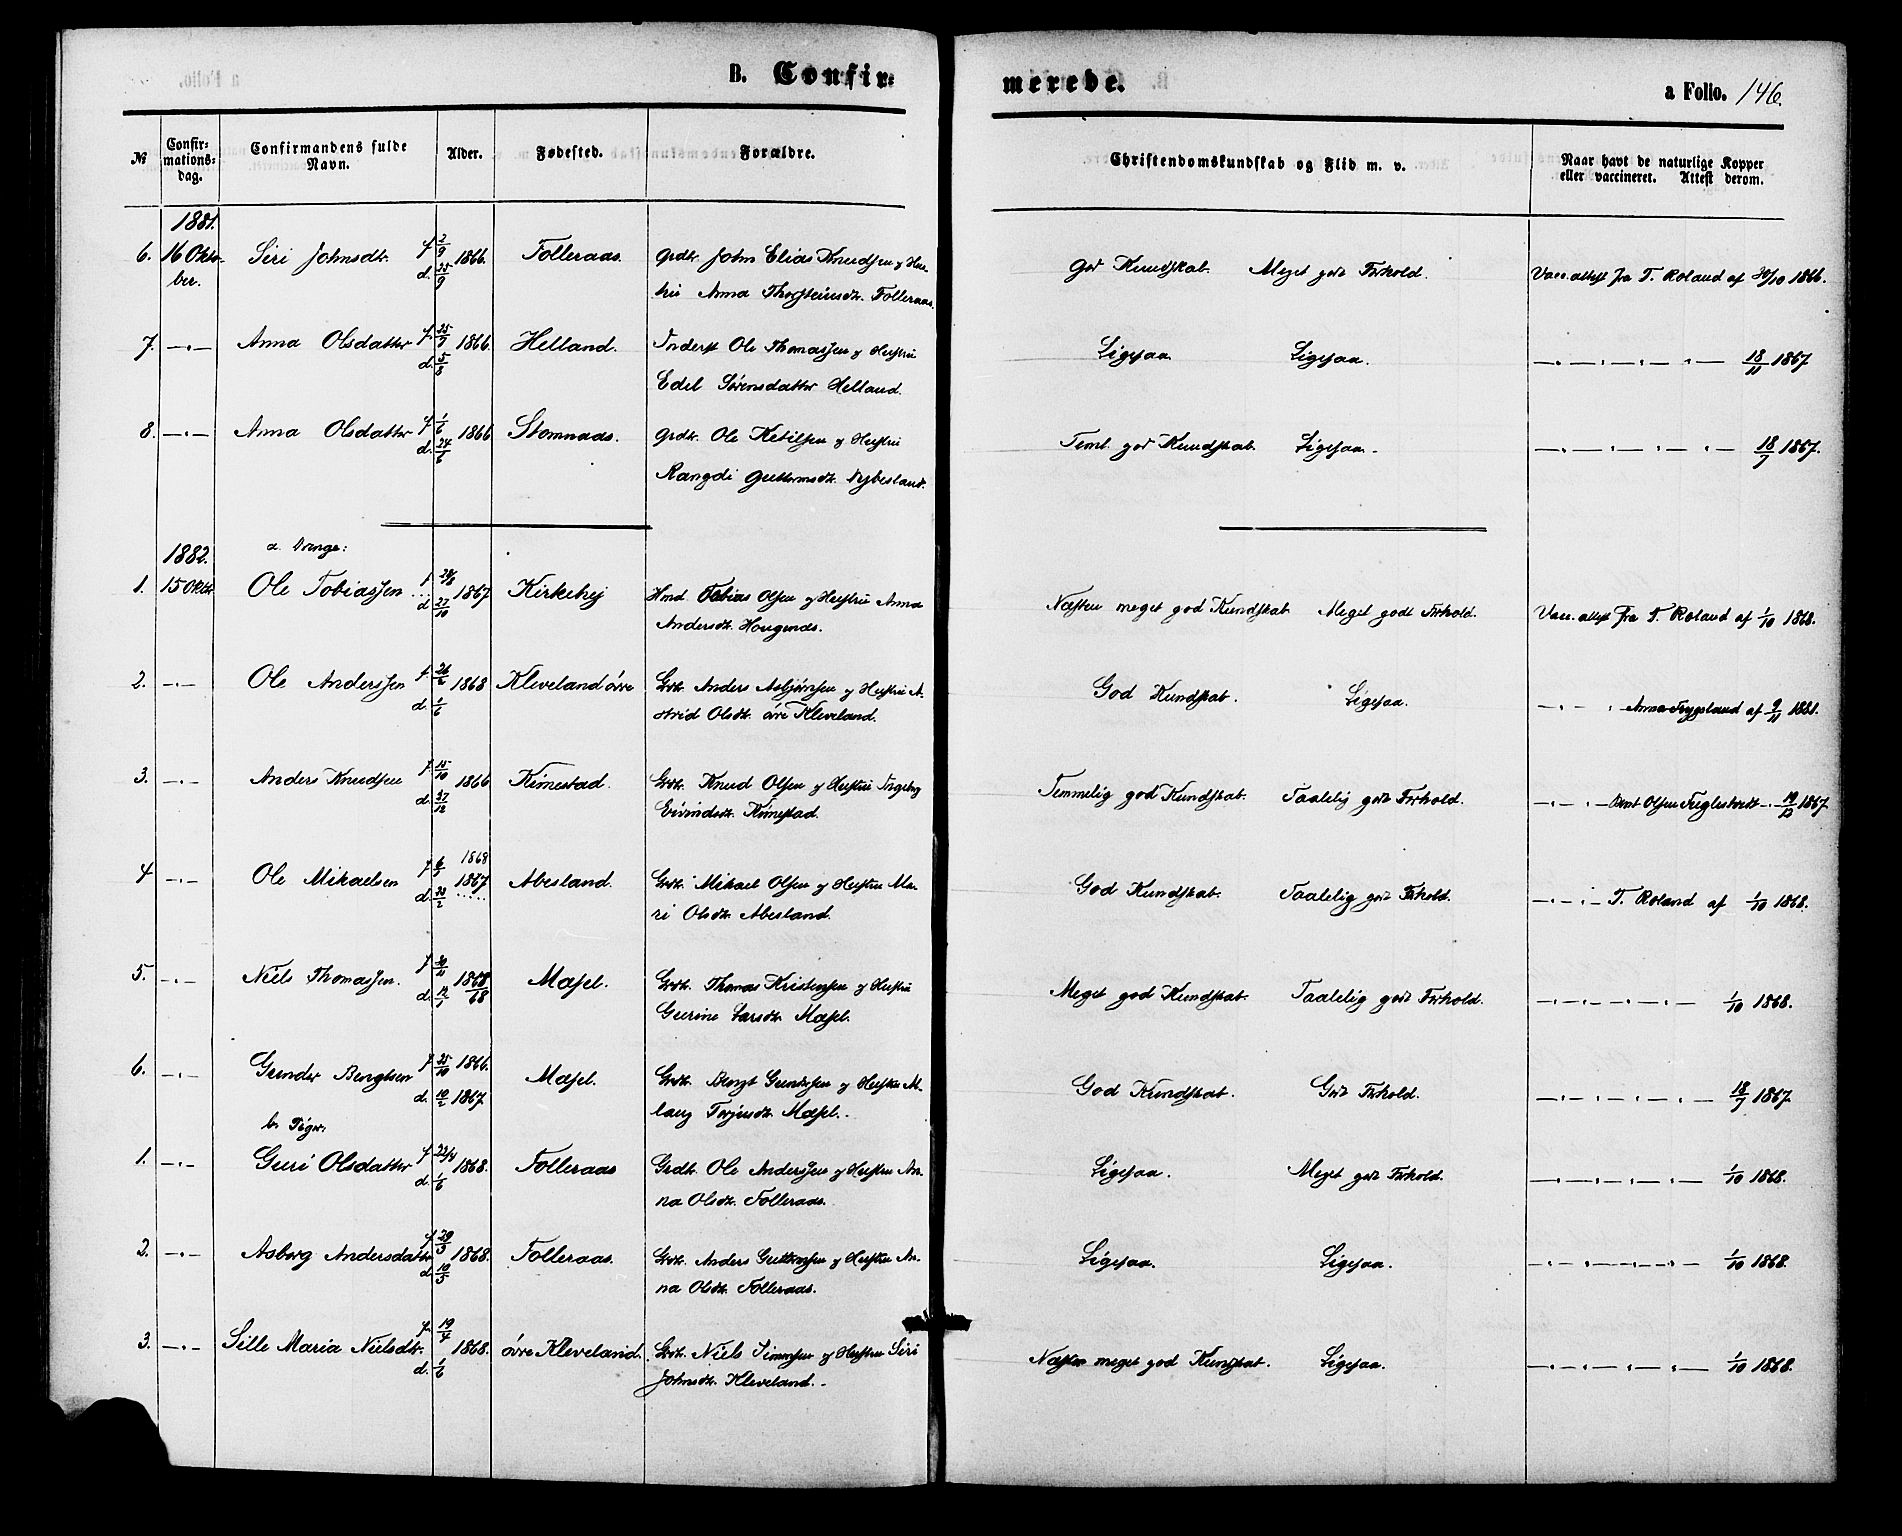 B. Confir=
merede.
a Folio. 146.
№
Confir=
mations=
dag.
Confirmandens fulde
Navn.
Alder.
Fødested.
Forældre.
Christendomskundskab og Flid m. v.
Naar havt de naturlige Kopper
eller vaccineret. Attest derom.
1881.
6. 16 Okto- Siri Johnsdtr. f 2/9 1866. Folleraas. Grdbr. John Elias Knudsen og Hus- God Kundskab. Meget godt Forhold. Vacc. attest fra T. Roland af 20/10 1866.
ber. d. 25/9 tru Anna Thorsteinsdtr. Folleraas.
7. —„— Anna Olsdatter f. 25/7 1866. Helland. Inderst Ole Thomassen og Hustru Ligesaa. Ligesaa. — „ — „ — „ — 18/11 1867
d. 5/8 Edel Sørensdatter Helland.
8. —„— Anna Olsdatter f 1/6 1866 Stomnaas. Grdbr. Ole Ketilsen og Hustru Teml. god Kundskab. Ligesaa. — „ — „ — „ — 18/7 1867.
d. 24/6 Rangdi Guttormsdtr.
1882. a. Drenge:
1. 15 Oktbr Ole Tobiassen f 28/8 1867 Kirkehej Hmd. Tobias Olsen og Hustru Anna Næsten meget god Kundskab Meget godt Forhold. Vacc. attest fra T. Roland af 1/10 1868.
d 27/10 Andersdtr. Haugenes.
2. —„— Ole Anderssen f. 26/2 1868 Kleveland övre Grdbr. Anders Asbjörnsen og Hustru A- God Kundskab. Ligesaa. — „ — „ Anna Trygsland af 9/11 1881.
d 1/6 strid Olsdtr. övre Kleveland.
3. —„— Anders Knudsen f 15/10 1866 Kimestad. Grdbr. Knud Olsen og Hustru Ingeborg Temmelig god Kundskab. Taalelig godt Forhold. — „ — „ — Olsen 1867
d. 27/12 Eivindsdtr. Kimestad.
4 —„— Ole Mikaelsen f 6/7 1868 1867 Abesland. Grdbr. Mikael Olsen og Hustru Ma- God Kundskab. Taalelig godt Forhold. — „ — „ — T. Roland af 1/10 1868.
d. 20/2 ri Olsdtr. Abesland.
5. —„— Niels Thomassen. f 30/11 1868/68 Mæsel. Grdbr. Thomas Kristensen og Hustru Meget god Kundskab. Taalelig godt Forhold. — „ — „ — „ — 1/10 1868.
d. 12/1 Gurine Larsdtr. Mæsel.
6. —„— Gunder Bengtsen f 25/10 1866. Mæsel. Grdbr. Bengt Gundersen og Hustru A- God Kundskab. Godt Forhold. — „ — „ — „ — 18/7 1867.
d. 10/2 1867 slaug Terjesdtr. Mæsel.
b. Piger:
1. —„— Guri Olsdatter f 22/4 1868. Folleraas Grdbr. Ole Anderssen og Hustru An- Ligesaa. Meget godt Forhold. — „ — „ — „ — 1/10 1868.
d. 1/6 na Olsdtr. Folleraas.
2. —„— Asborg Andersdatter f 29/3 1868. Folleraas. Grdbr. Anders Guttormsen og Hustru An- Ligesaa. Ligesaa. — „ — „ — „ — 1/10 1868.
d. 10/5 na Olsdtr. Folleraas.
3. —„— Sille Maria Nielsdtr. f. 19/4 1868. övre Kleveland. Grdbr. Niels Simonsen og Hustru Siri Næsten meget god Kundskab. Ligesaa. — „ — „ — „ — 1/10 1868.
d. 1/6 Johnsdtr. Kleveland.